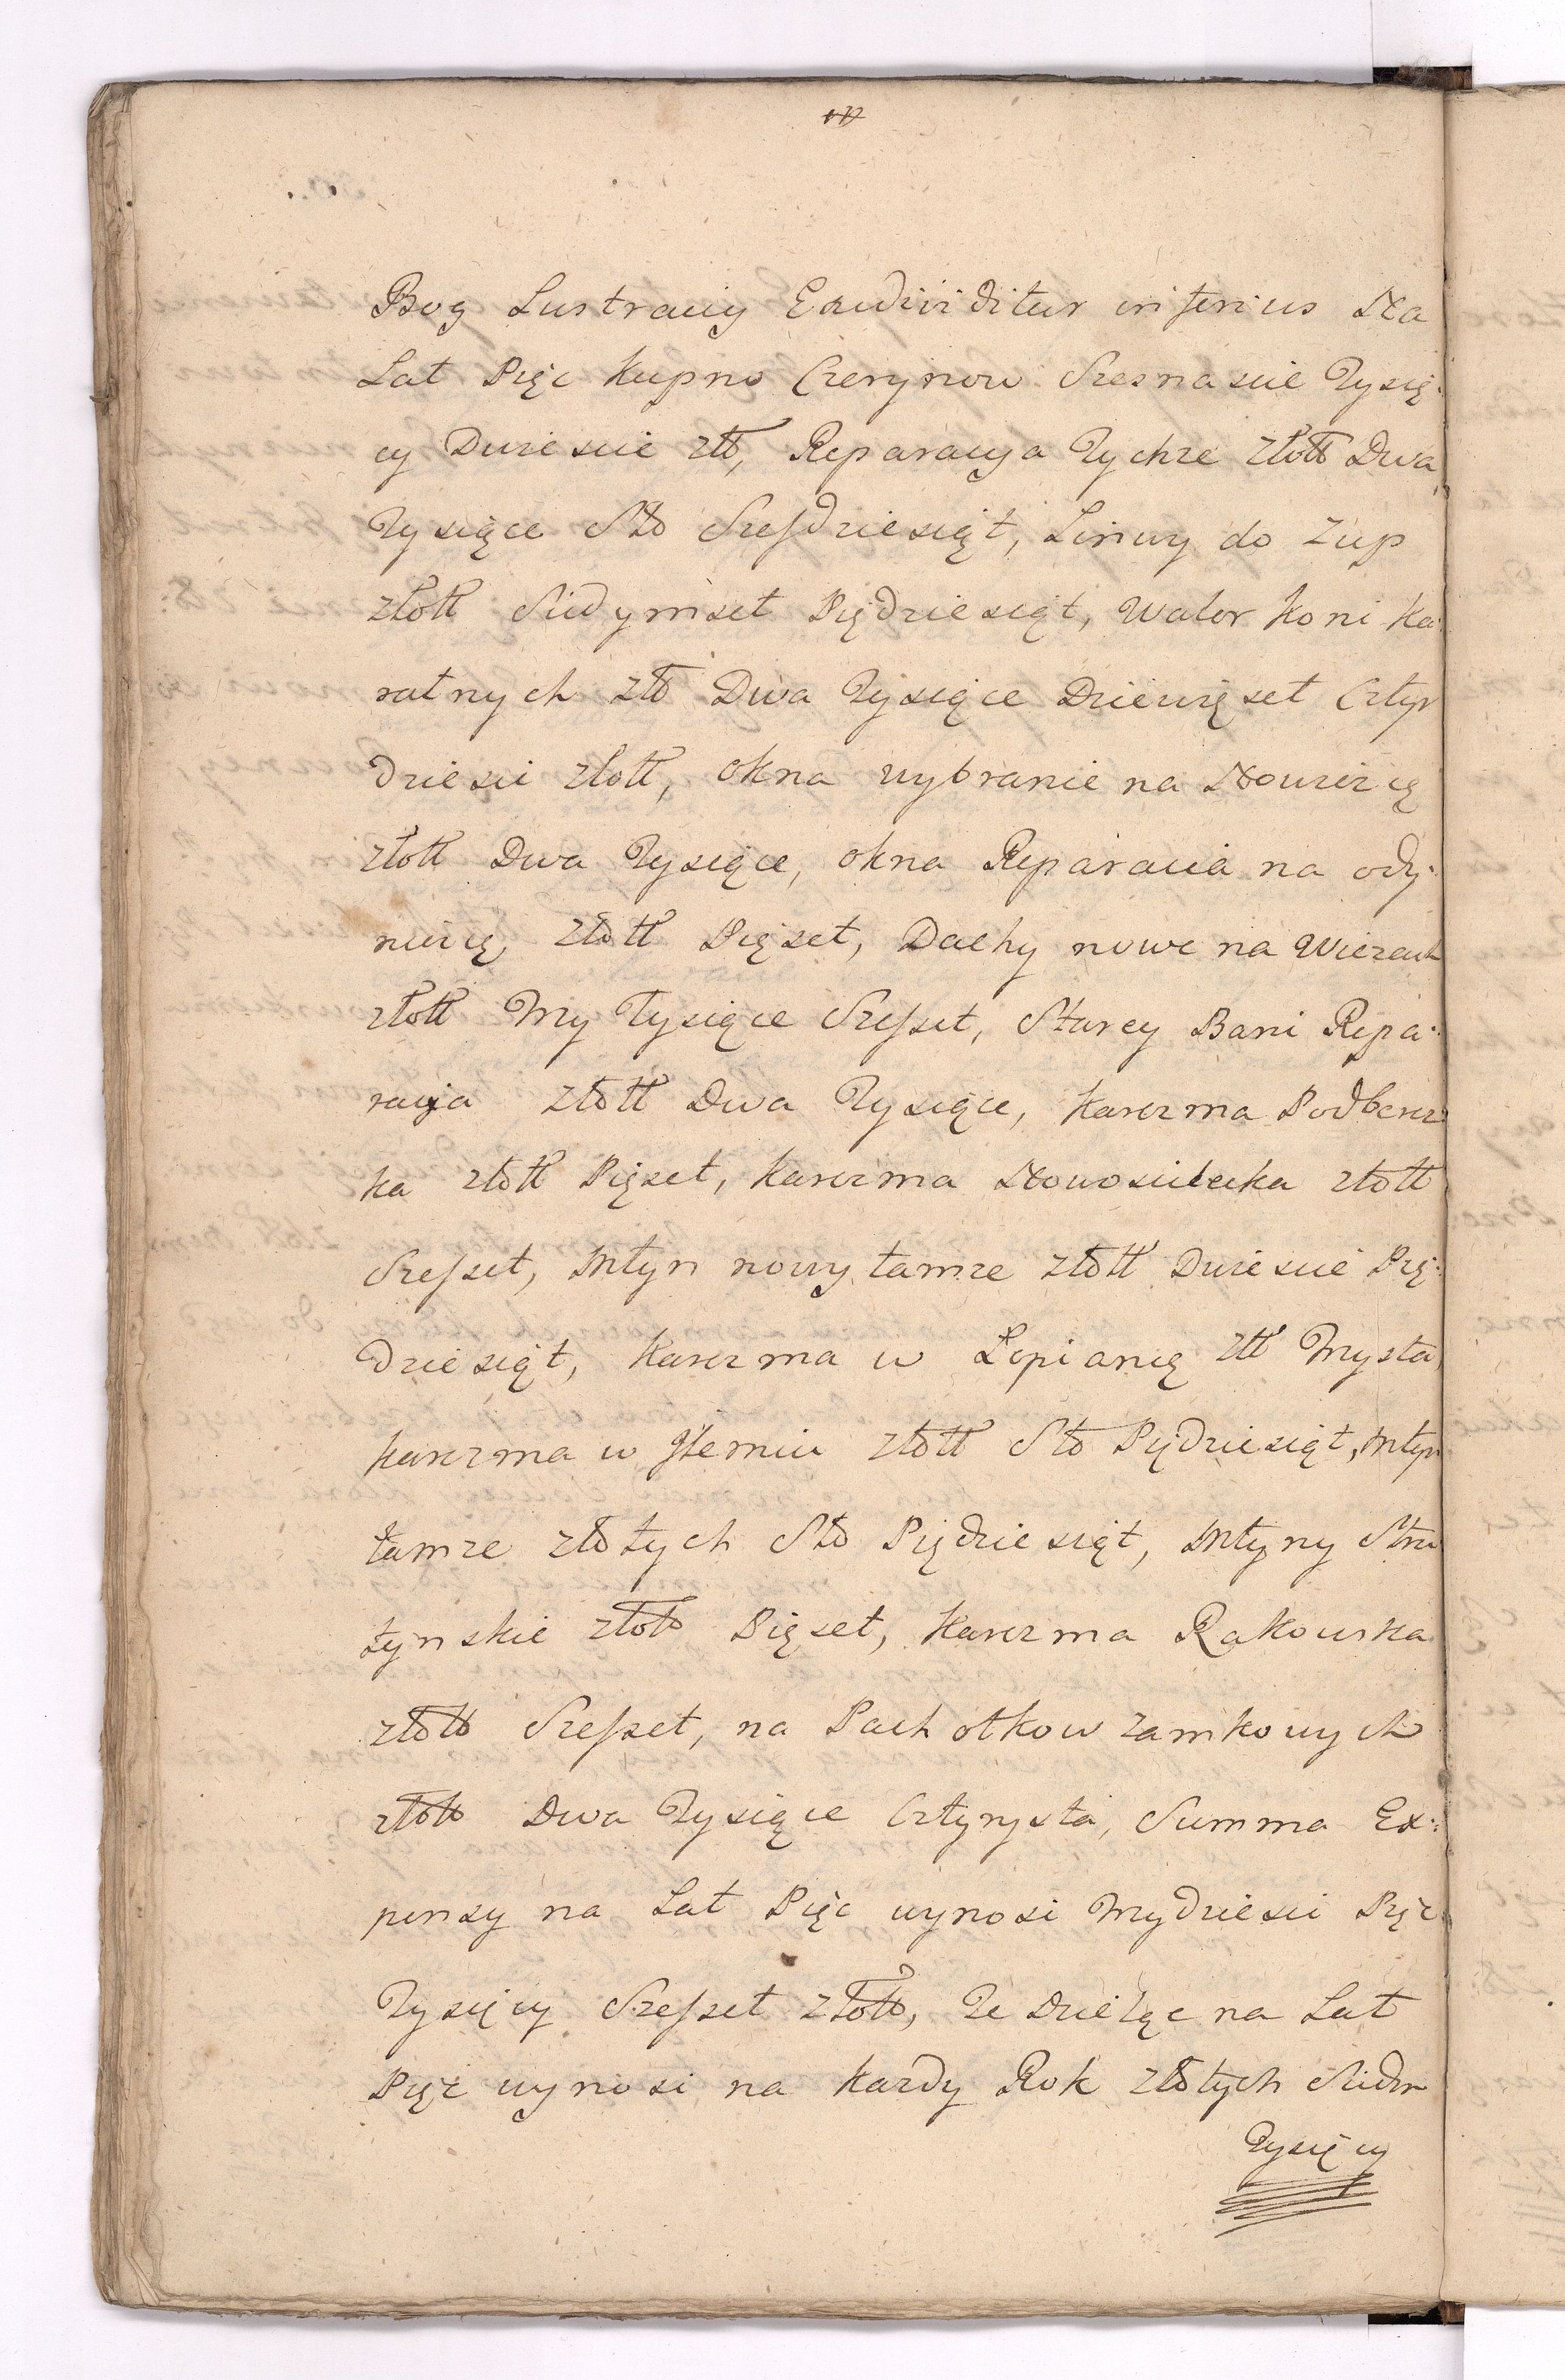 Bog Lustracyi Exdividitur inferius Na
Lat Pięc Kupno Czerynow Szesnascie Tysię:
cy Dwiescie złł, Reparacya Tychze złołł Dwa
Tysiące Sto Szesdziesiąt, Linwy do Zup
złołł Siedymset Piędziesiąt, Walor Koni Ka
ratnych zło Dwa Tysiące Dziewięset Cztyr
dziesci złołł, Okna wybranie na Nowicę
złołł Dwa Tysiące, okna Reparacia na ody:
nicę złołł Pięset, Dachy nowe na Wiezach
złołł Trzy Tysiące Szesset, Starey Bani Repa:
racyja złołł Dwa Tysiące, Karczma Podberez
ka złołł Pięset, Karczma Nowosielecka złołł
Szesset, Młyn nowy tamze złołł Dwiescie Pię:
dziesiąt, Karczma w Lopiance złł Trzysta
Karczma w Jłemiu złołł Sto Piędziesiąt, Młyn
tamze złotych Sto Piędziesiąt, Młyny Stru
tynskie złoło Pięset, Karczma Rakowska
złoło Szesset, na Pachołkow zamkowych
złoło Dwa Tysiące Cztyrysta, Summa Ex:
pensy na Lat Pięc wynosi Trzydziesci Pięc
Tysięcy Szesset złoło, Te Dzieląc na Lat
Pięc wynosi na Kazdy Rok złotych Siedm
Tysięcy